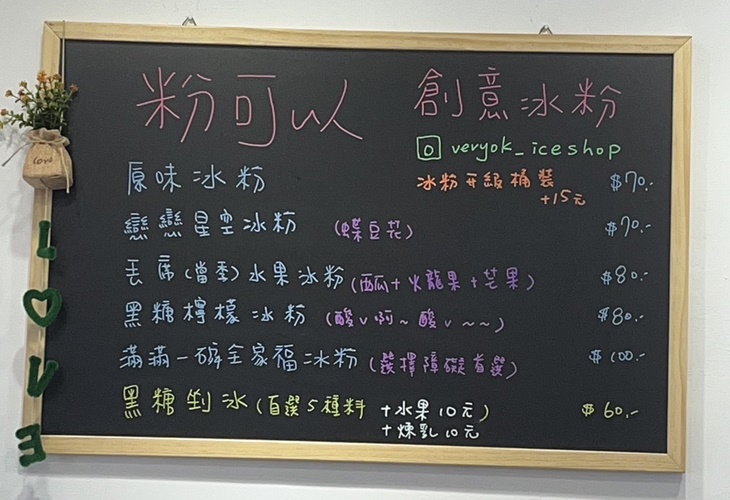 粉可以 創意冰粉
veryok_iceshop
原味冰粉 冰粉升級桶裝 +15元 $70.-
戀戀星空冰粉 (蝶豆花) $70.-
丟席(當季)水果冰粉(西瓜+火龍果+芒果) $80.-
黑糖檸檬冰粉 (酸ˇ啊~酸ˇ~~) $80.-
滿滿一碗全家福冰粉 (選擇障礙首選) $100.-
黑糖剉冰(自選5種料 +水果10元) $60.-
+煉乳10元
Love
L
O
V
E